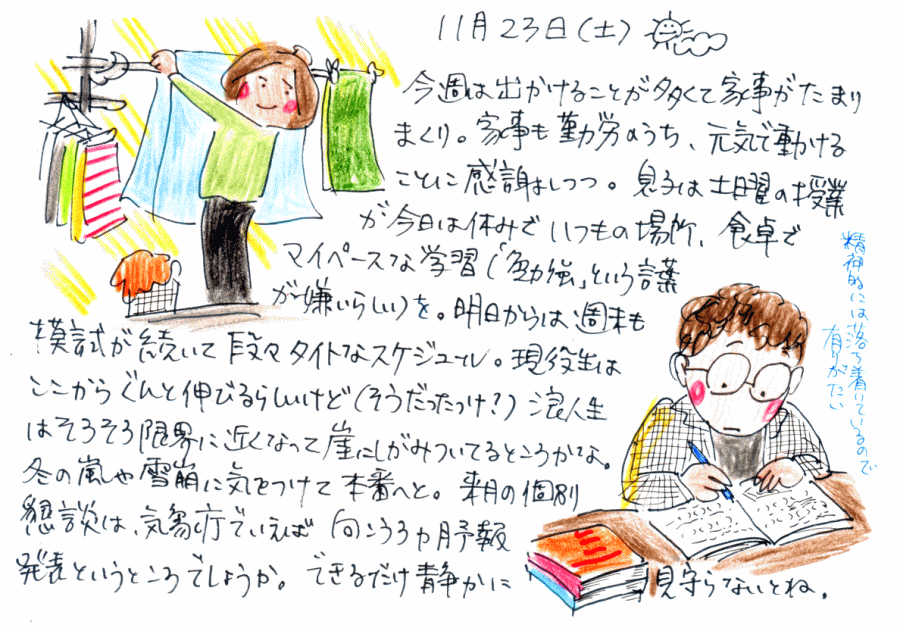 11月23日(土)
今週は出かけることが多くて家事がたまり
まくり。家事も勤労のうち、元気で動ける
ことに感謝はしつつ。息子は土曜の授業
が今日は休みでいつもの場所、食卓で
マイペースな学習(「勉強」という言葉
が嫌いらしい)を。明日からは週末も
模試が続いて段々タイトなスケジュール。現役生は
ここからぐんと伸びるらしいけど(そうだったっけ?)浪人生
はそろそろ限界に近くなって崖にしがみついてるところかな。
冬の嵐や雪崩に気をつけて本番へと。来月の個別
懇談は、気象庁でいえば向こう3ヵ月予報
発表というところでしょうか。できるだけ静かに見守らないとね。
精神的には落ち着いているので
有りがたい